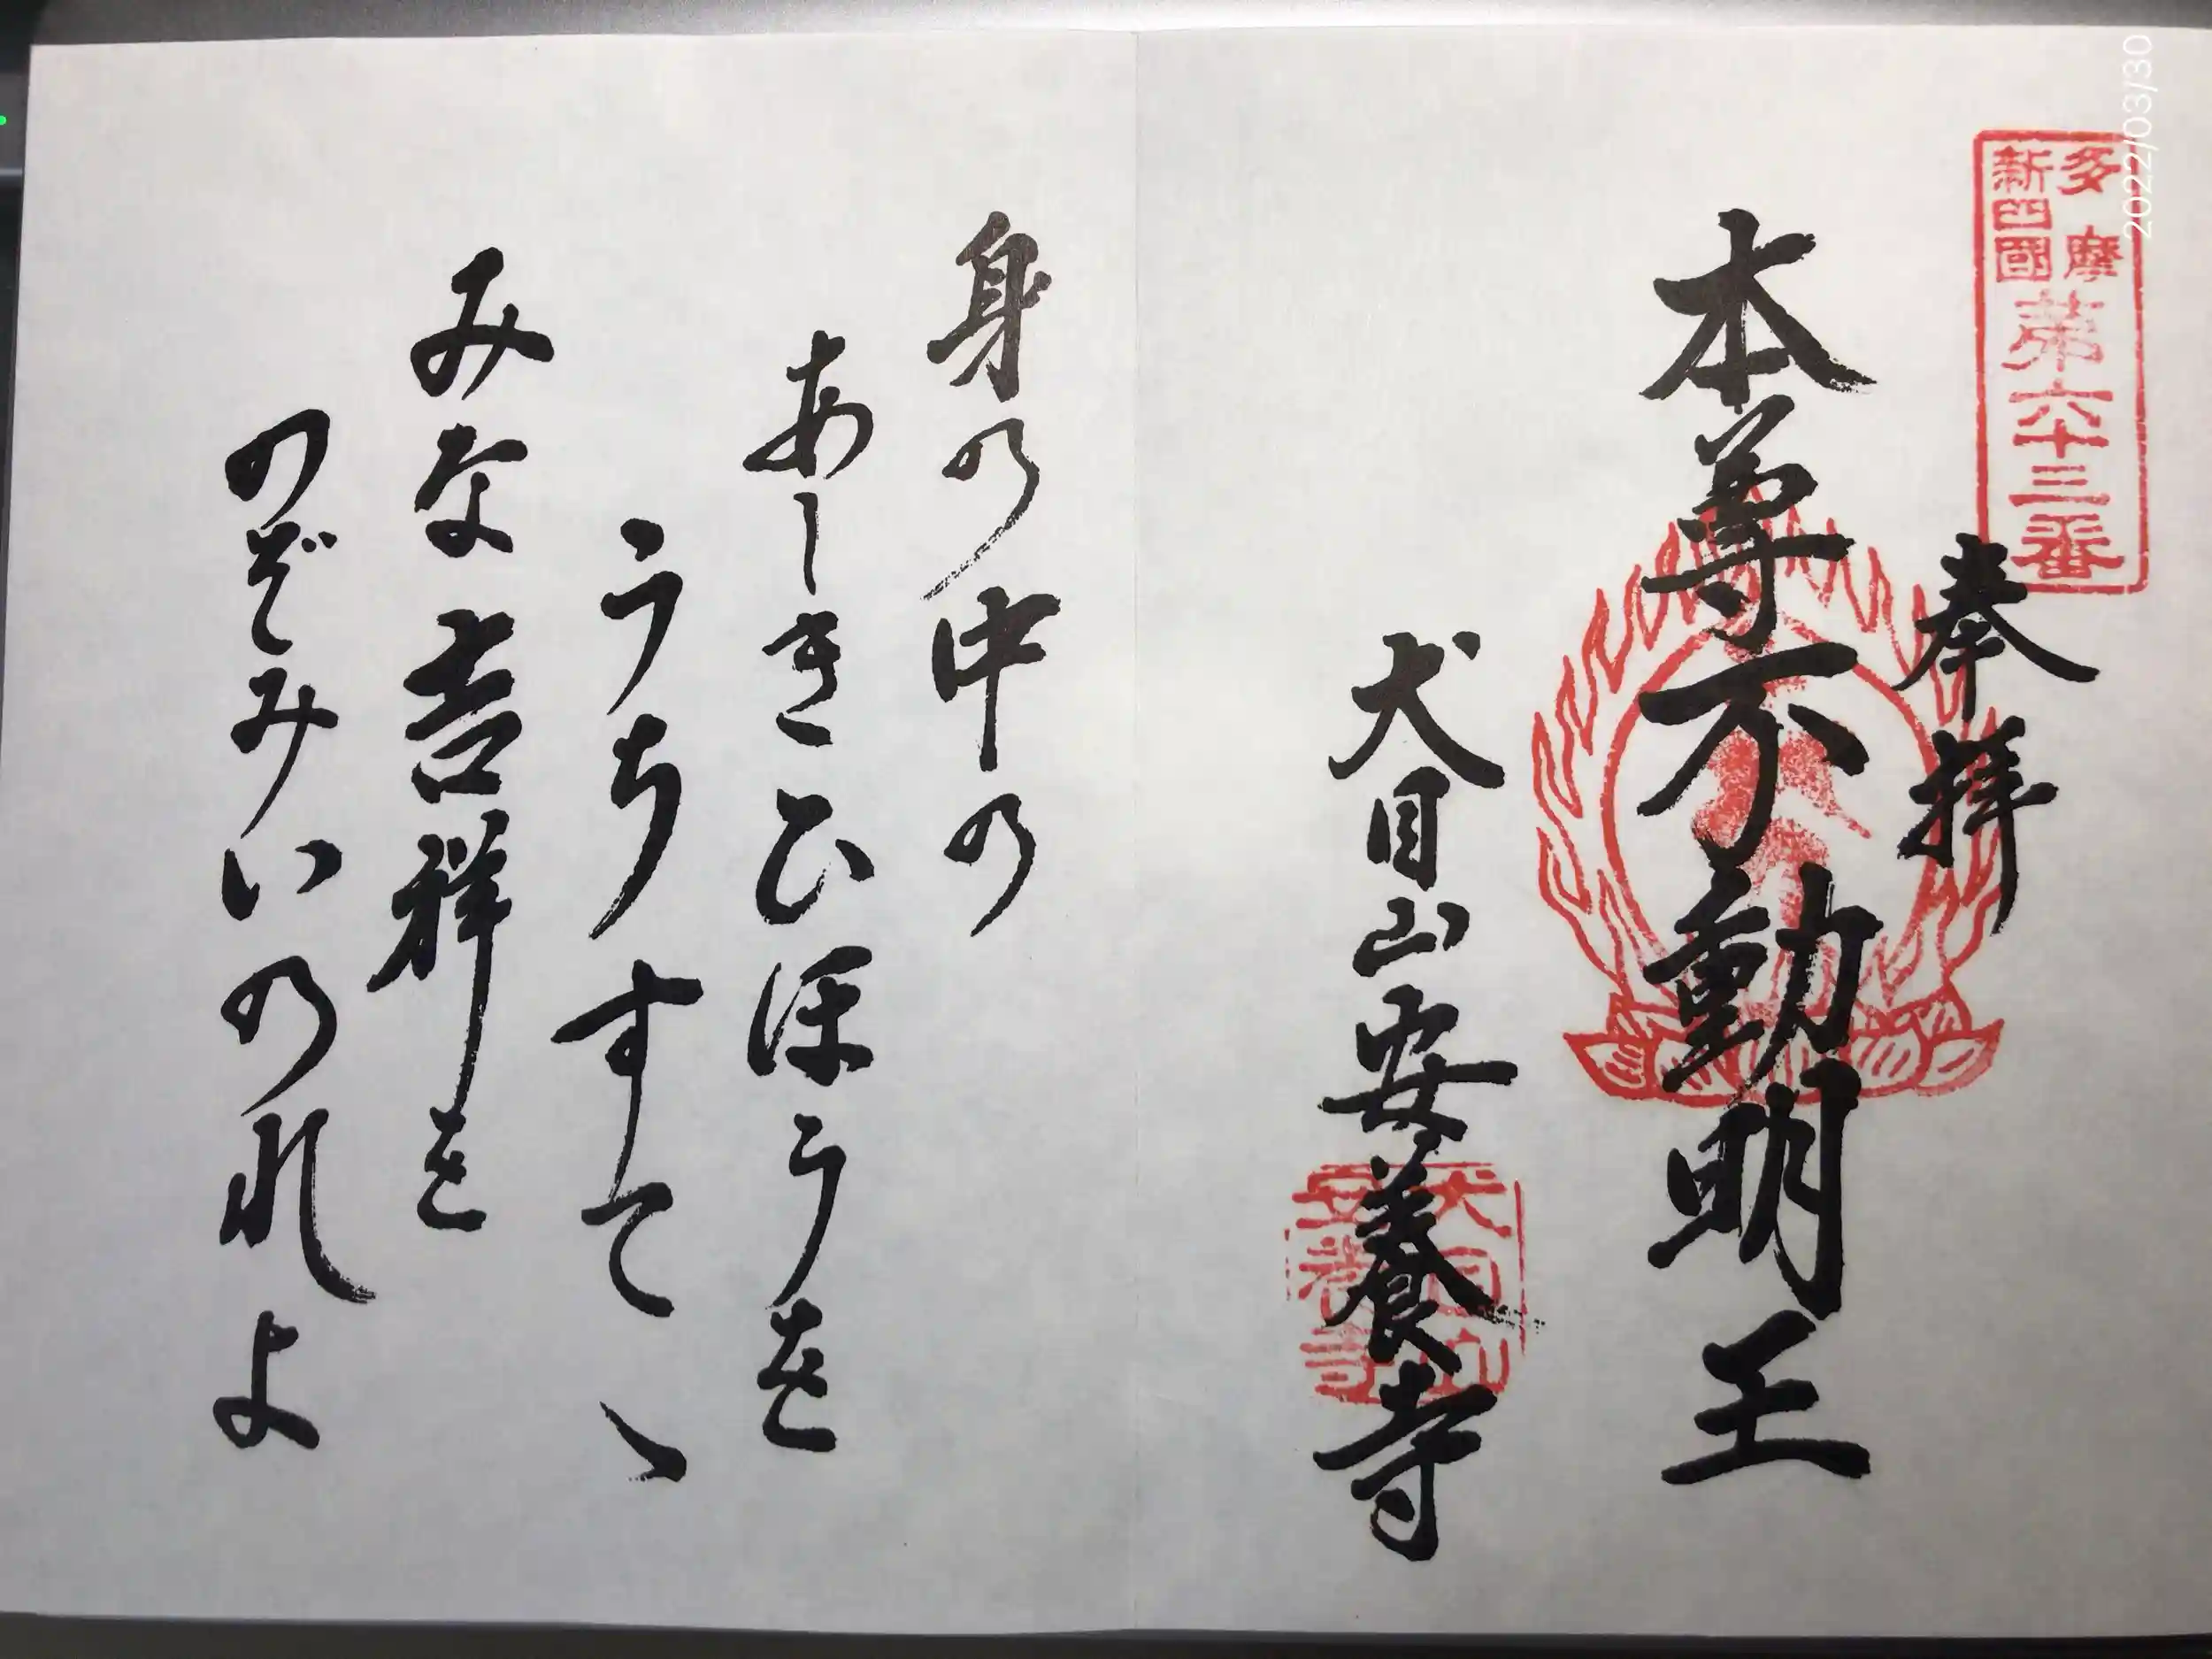 2022/03/30
多摩
新四國
第六十三番
奉拝
本尊不動明王
犬目山安養寺
犬目山
安養寺
身の中の
あしきひほうを
うちすてゝ
みな吉祥を
のぞみいのれよ